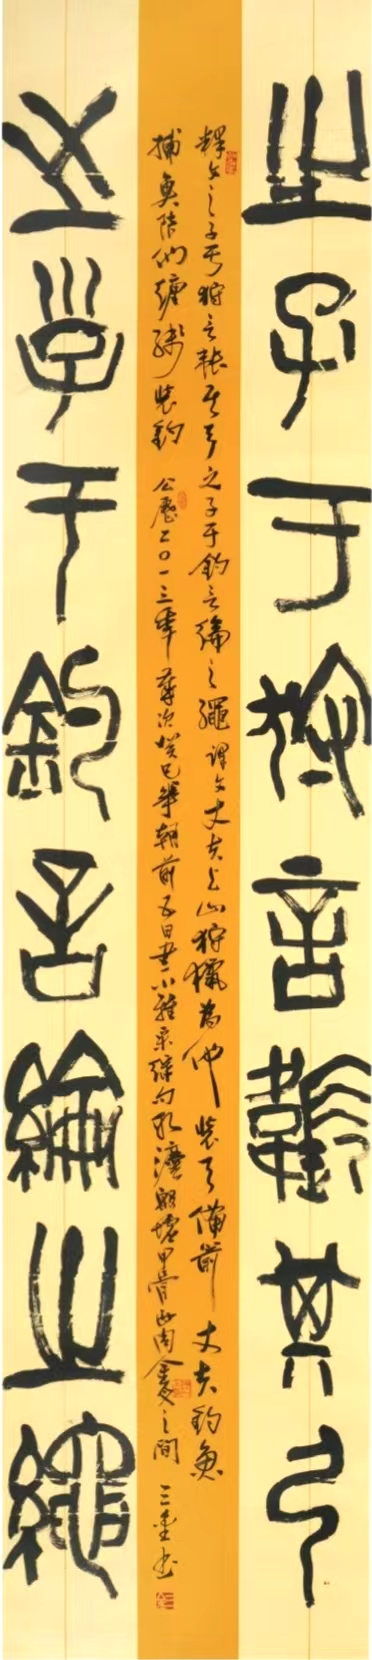 之子于狩言韔其弓
釋文之子于狩言韔其弓之子于釣言綸之繩譯文丈夫上山狩獵為他裝弓備箭丈夫釣魚
捕魚陪他纏線裝鈎 公歷二〇一三年歲次癸巳華朝前五日書小雅采綠句 甲骨西周金文之間 三金书
之子于釣言綸之繩